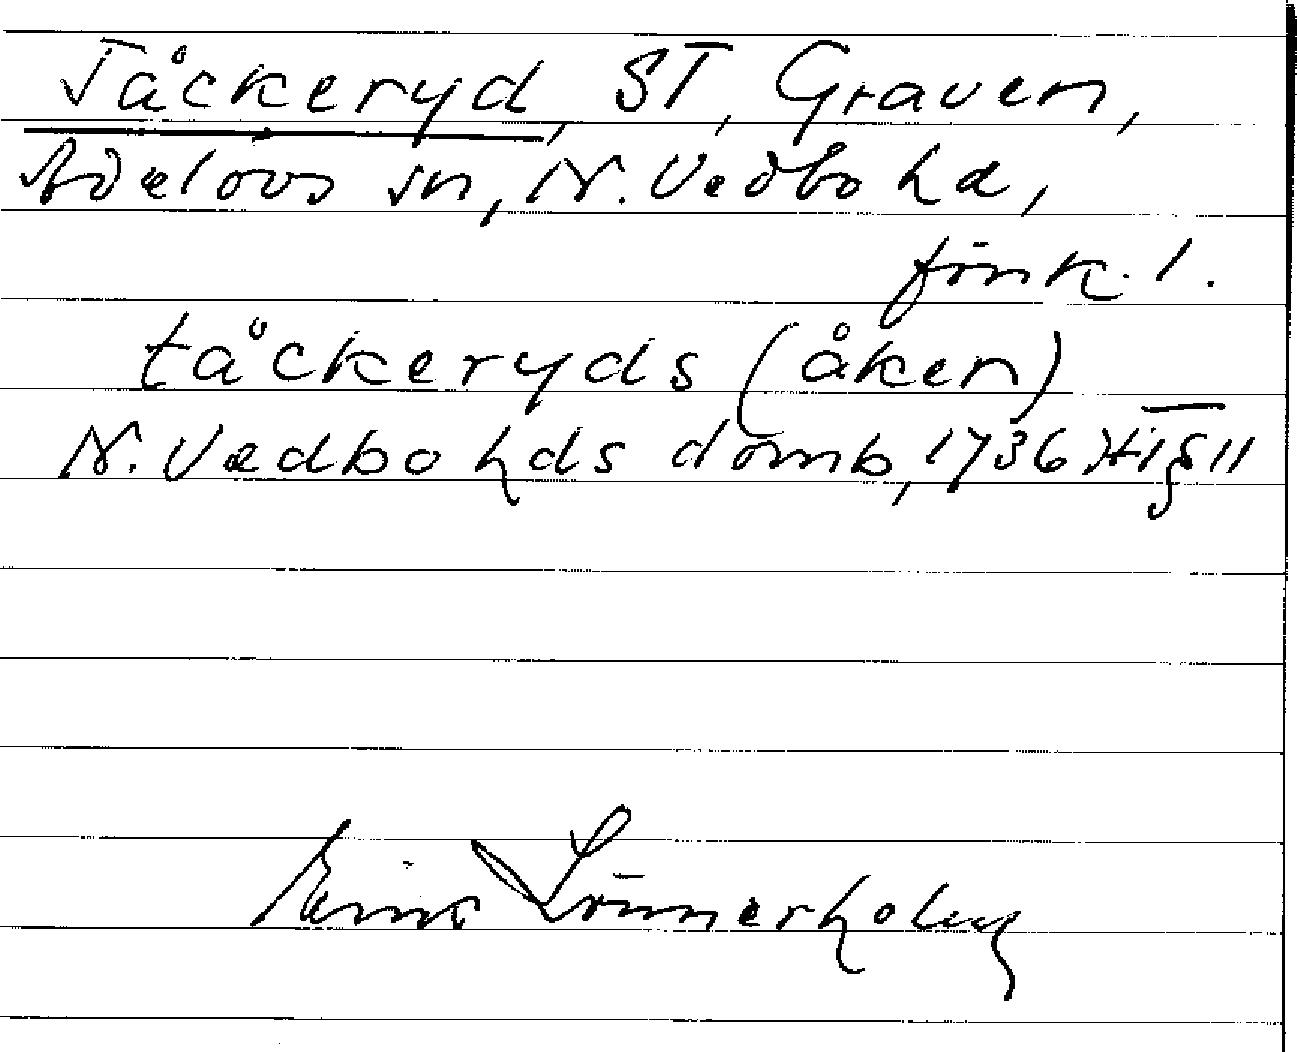 Tåckeryd, ST, Graven,
Adelövs sn, N. Vedbo hd,
Jönk. l.
tåckeryds (åker)
N. Vedbo hds domb, 1736 Ht § 11
Erik Lönnerholm